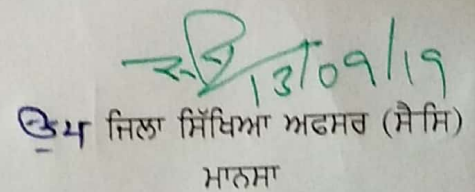 13/09/19
ਉਪ ਜਿਲਾ ਸਿੱਖਿਆ ਅਫਸਰ (ਸੈਸਿ)
ਮਾਨਸਾ